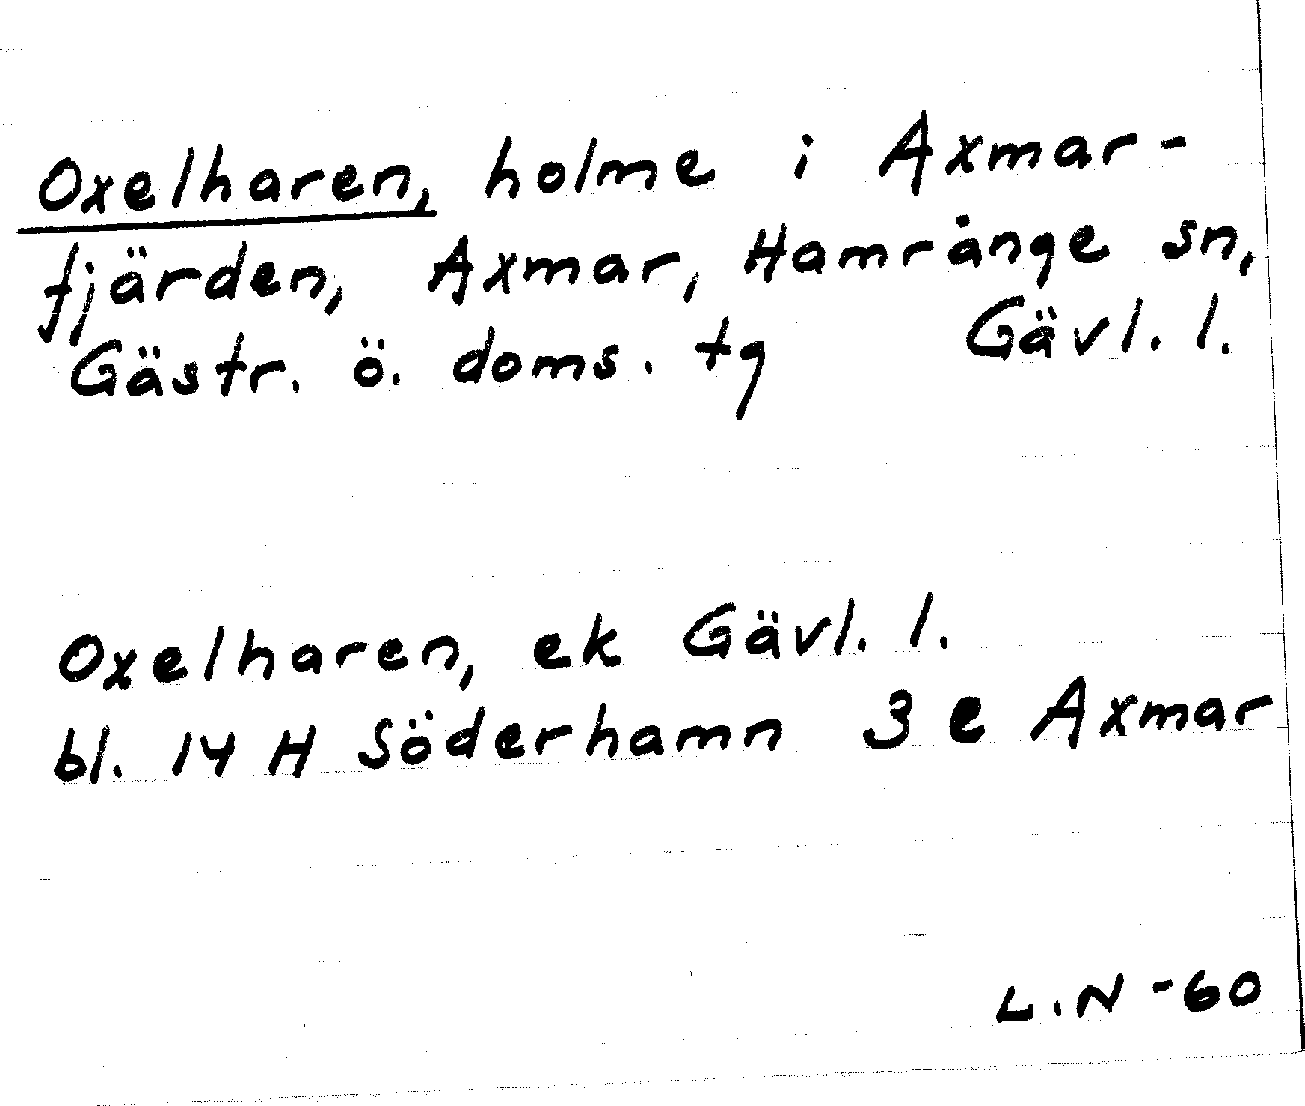 Oxelharen, holme i Axmar-
fjärden, Axmar, Hamrånge sn,
Gästr. ö. doms. tg Gävl. l.
Oxelharen, ek Gävl. l.
bl. 14 H Söderhamn 3 e Axmar
L.N -60